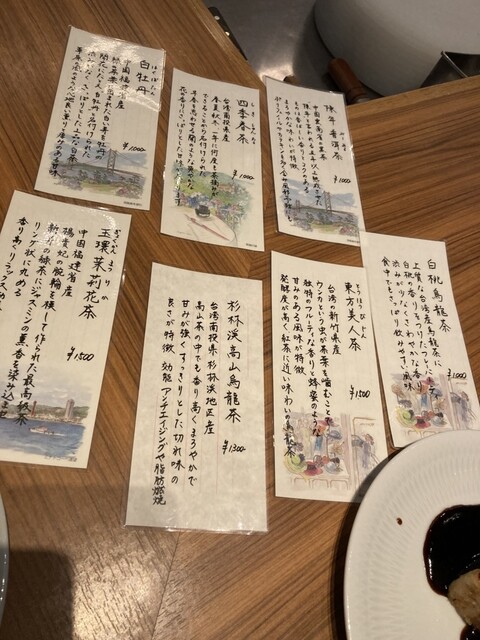 はくぼたん
白牡丹
中国福建省産
¥1,000
しきしゅんちゃ
四季春茶
台湾南投県産
春夏秋冬一年に何度も茶摘みが
できることから名付けられた
¥1,000
陳年普洱茶
中国雲南省の黒茶
¥1,000
ぎょくかんまつりか
玉環茉莉花茶
中国福建省産
楊貴妃の腕輪を模して作られた最高級茶
新芽の緑茶にジャスミンの薫香を染み込ませ
リング状に丸める
¥1,500
杉林渓高山烏龍茶
台湾南投県杉林渓地区産
高山茶の中でも香り高くまろやかで
甘みが強く、すっきりとした切れ味の
良さが特徴 効能 アンチエイジングや脂肪燃焼
¥1,300
とうほうびじん
東方美人茶
台湾の新竹県産
ウンカという虫が茶葉を噛むことで
独特のフルーティな香りと蜂蜜のような
甘みのある風味が特徴
発酵度が高く紅茶に近い味わいの烏龍茶
¥1,500
白桃烏龍茶
上質な台湾産烏龍茶に
白桃の香りをうつした
渋みが少なく
食中でもさっぱり飲みやすいお味
¥1,000